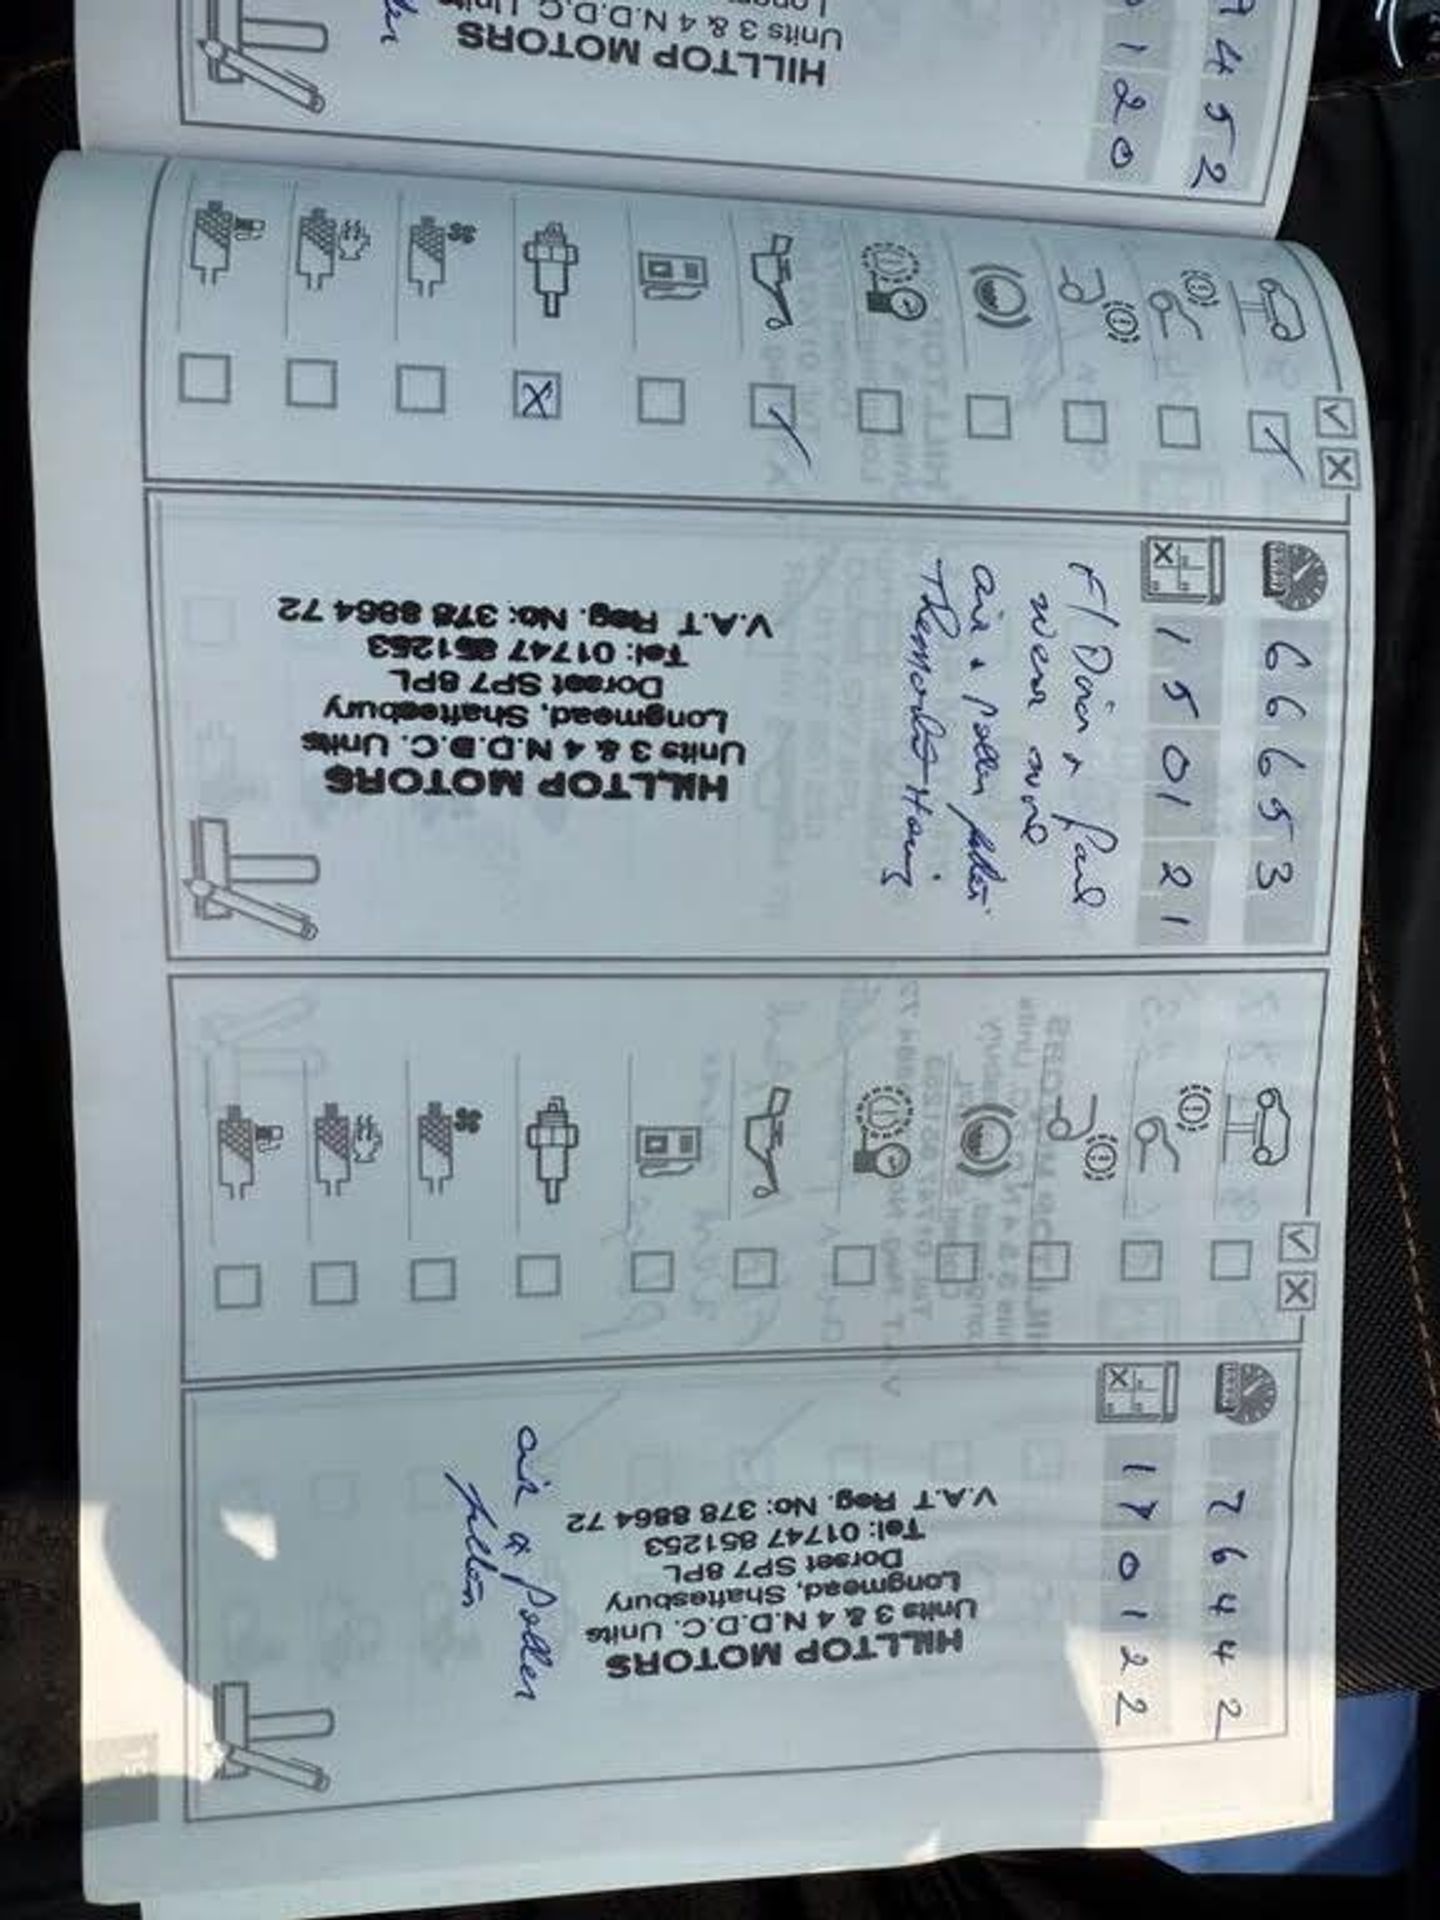 9452
0120
HILLTOP MOTORS
Units 3 & 4 N.D.D.C. Units
66653
15 01 21
F/Door & fans
Wear sure
air & pollen filter
Thermostat Housing
HILLTOP MOTORS
Units 3 & 4 N.D.D.C. Units
Longmead, Shaftesbury
Dorset SP7 8PL
Tel: 01747 851253
V.A.T Reg. No: 378 8864 72
76442
17 01 22
HILLTOP MOTORS
Units 3 & 4 N.D.D.C. Units
Longmead, Shaftesbury
Dorset SP7 8PL
Tel: 01747 851253
V.A.T Reg. No: 378 8864 72
air & Pollen
filter